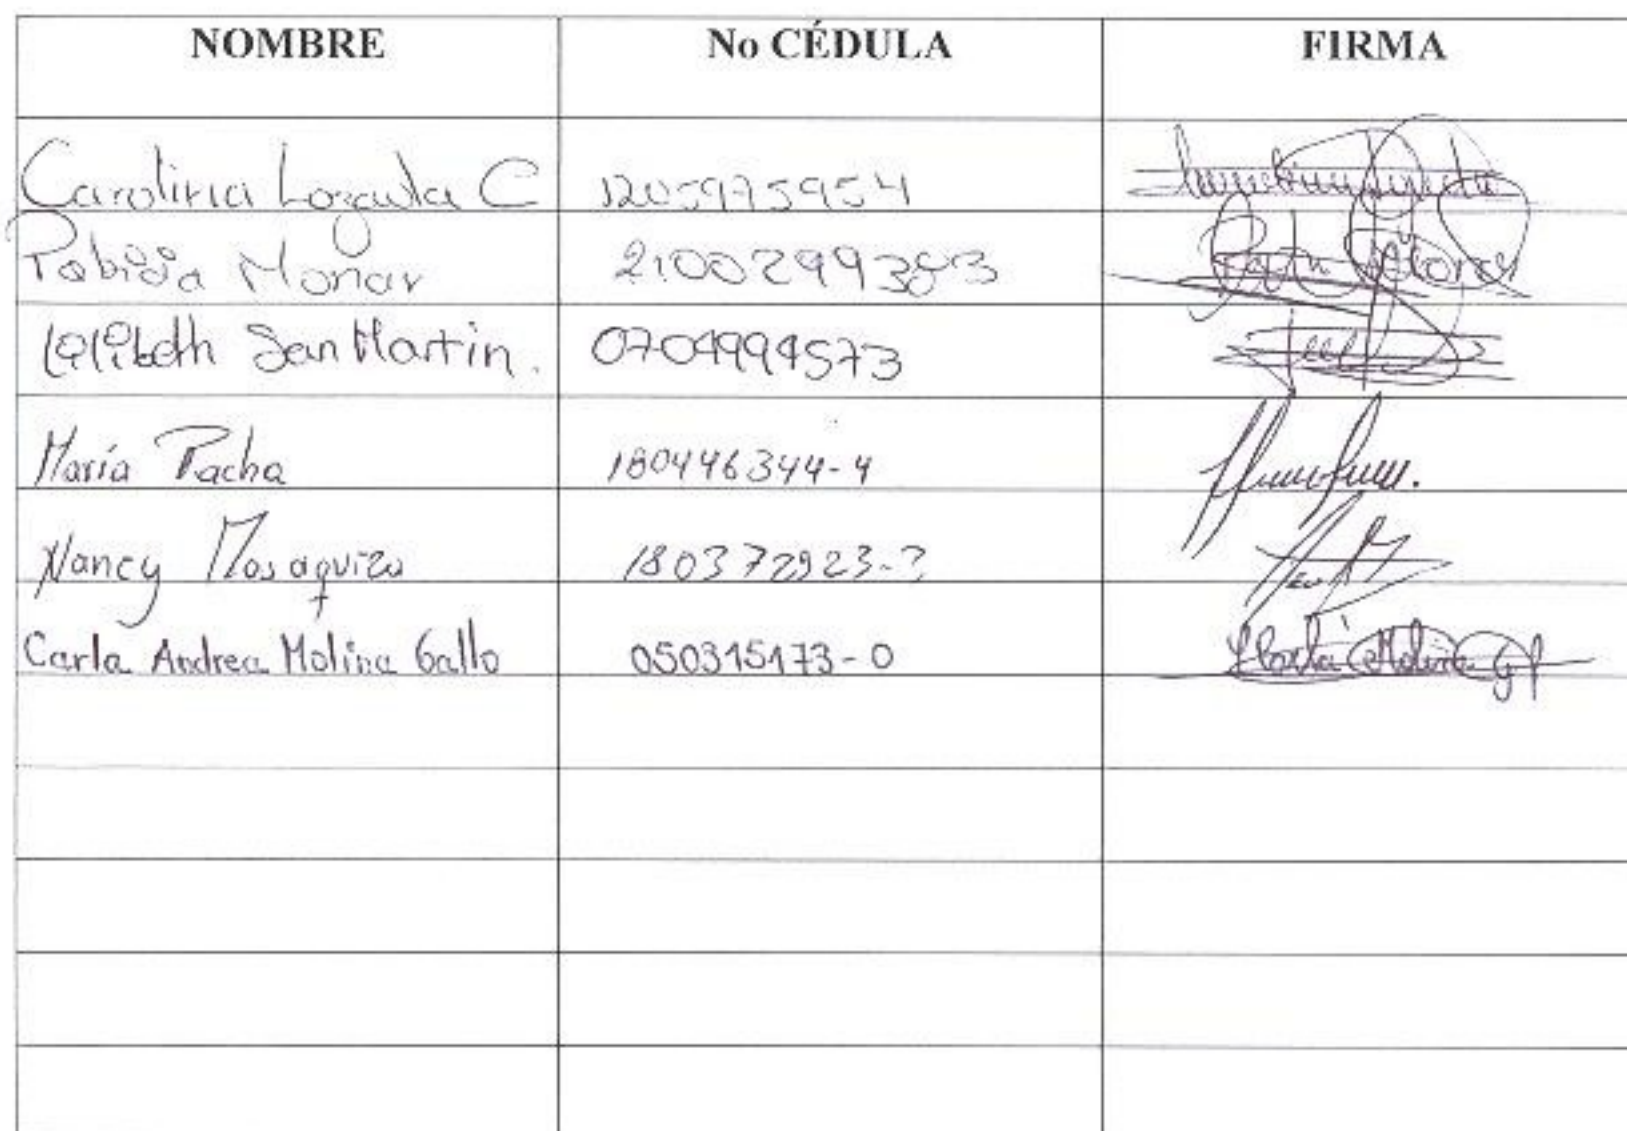 NOMBRE No CÉDULA FIRMA
Carolina Lozada C 1205975954
Monar 2100299383
San Martin. 0704994573
María Pacha 180446344-4
Nancy Mosaquiza 180372923-?
Carla Andrea Molina Gallo 050315173-0 Carla Molina G